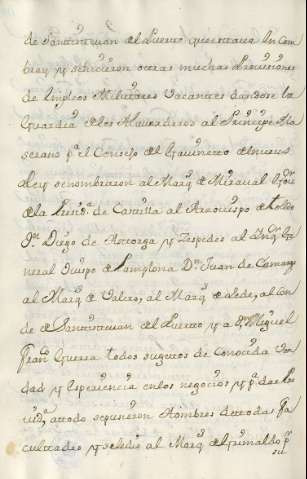 de Santisteuan del Puerto que estaua En Cam
bray y se hicieron otras muchas Prouisiones
de Empleos Militares vacantes dandose la
Guardia de los Alauarderos al Principe Ma
serano pª el Consejo del Gauinete del nueuo
Rey se nombraron al Marqs de Miraual Gor
de la Presidª de Castilla al Arzouispo de Toledo
Dn Diego de Astorga y Zespedes al Inqr Ge
neral Ouispo de Pamplona Dn Juan de Camargo
al Marqs de Valero, al Marqs de Lede, al Con
de de Santisteuan del Puerto y a Dn Miguel
Franco Guerra todos sugetos de Conocida Von
dad y Esperiencia en los negocios y pª
a todo se pusieron Hombres de toda fa
cultades y se le dio al Marqs de Grimaldo pª
su